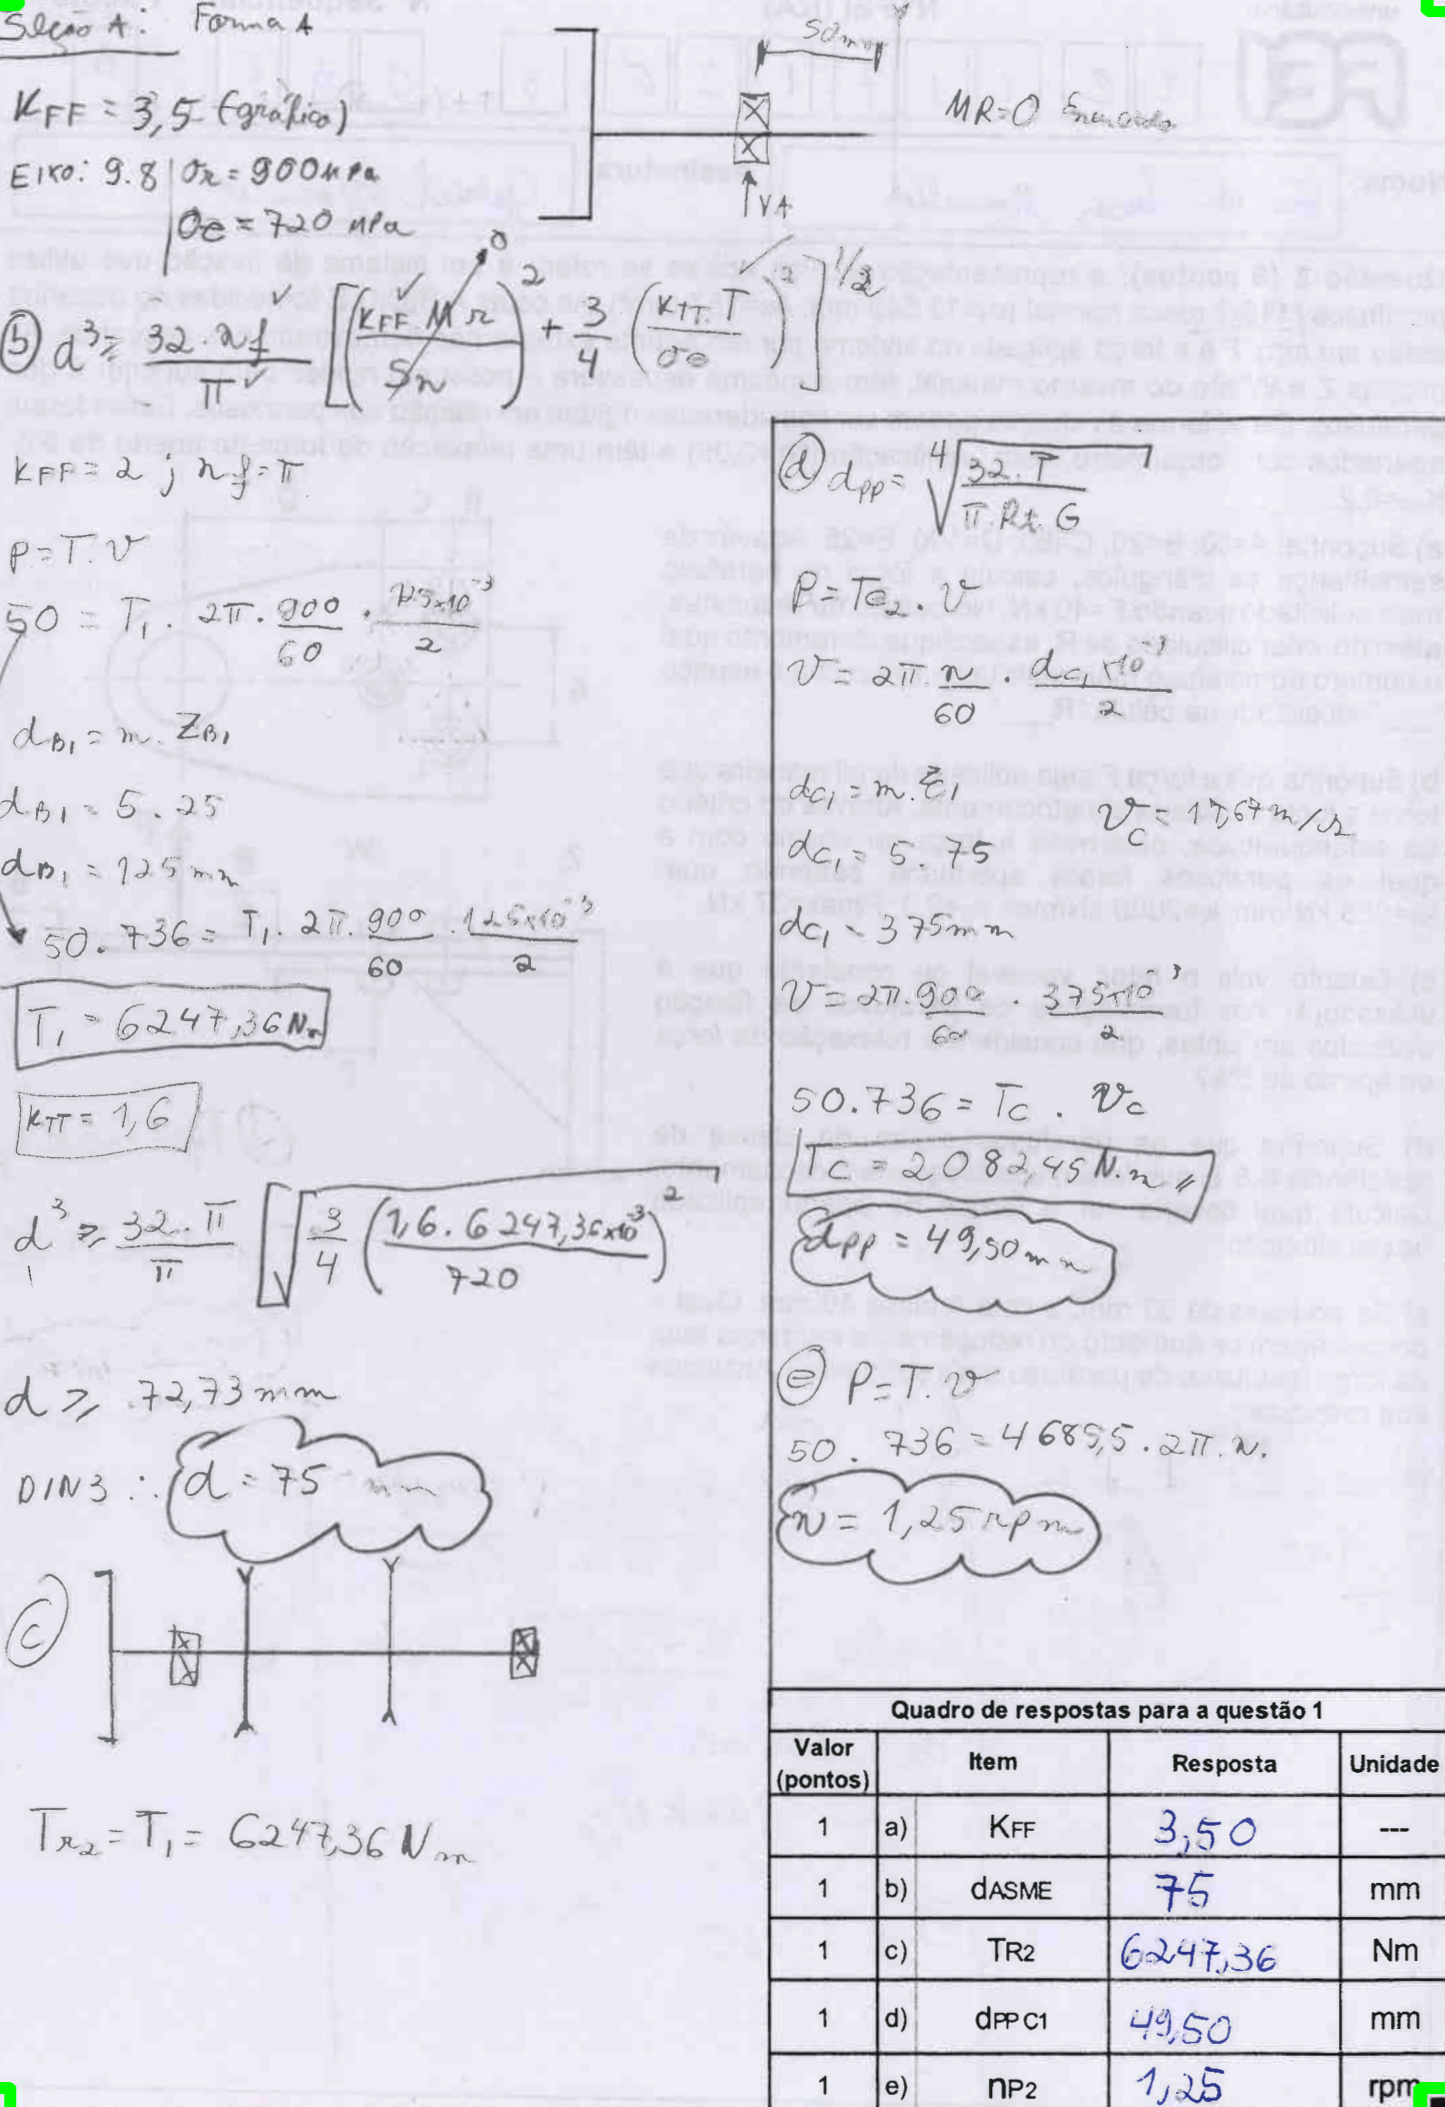 Seção A: Forma A
50mm
KFF = 3,5 (gráfico)
MR=0
EIXO: 9.8 | σr = 900 MPa
σe = 720 MPa
VA
b) d³ ≥ 32.nf/π [(KFF Mr/Sn)² + 3/4 (KTT.T/σe)²]^1/2
0
KFF = 2 ; nf = π
P = T.v
50 = T1 . 2π . 900/60 . 125x10⁻³/2
dB1 = m . ZB1
dB1 = 5 . 25
dB1 = 125 mm
50.736 = T1 . 2π . 900/60 . 125x10⁻³/2
T1 = 6247,36 Nm
KTT = 1,6
d³ ≥ 32.π/π [√3/4 (1,6 . 6247,36x10³/720)²
d ≥ 72,73 mm
DIN3 ∴ d = 75 mm
c)
TR2 = T1 = 6247,36 Nm
d) dPP = ⁴√32.T/π.Rt.G
P = Te2 . v
v = 2π.n/60 . dC1x10⁻³/2
dC1 = m.ZC1
vC = 17,67 m/s
dC1 = 5.75
dC1 = 375 mm
v = 2π.900/60 . 375x10⁻³/2
50.736 = TC . vC
TC = 2082,45 N.m
dPP = 49,50 mm
e) P = T.v
50 . 736 = 4685,5 . 2π.n.
n = 1,25 rpm
Quadro de respostas para a questão 1
Valor (pontos) Item Resposta Unidade
1 a) KFF 3,50 ---
1 b) dASME 75 mm
1 c) TR2 6247,36 Nm
1 d) dPP C1 49,50 mm
1 e) nP2 1,25 rpm